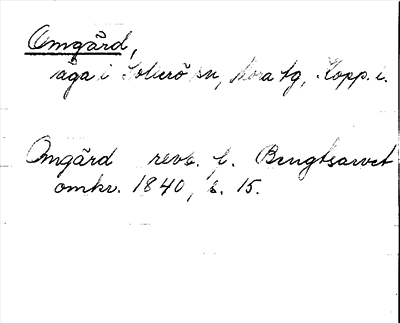 Omgård,
äga i Sollerö sn, Mora tg, Kopp. l.
Omgård revb. f. Bengtsarvet
omkr. 1840, s. 15.